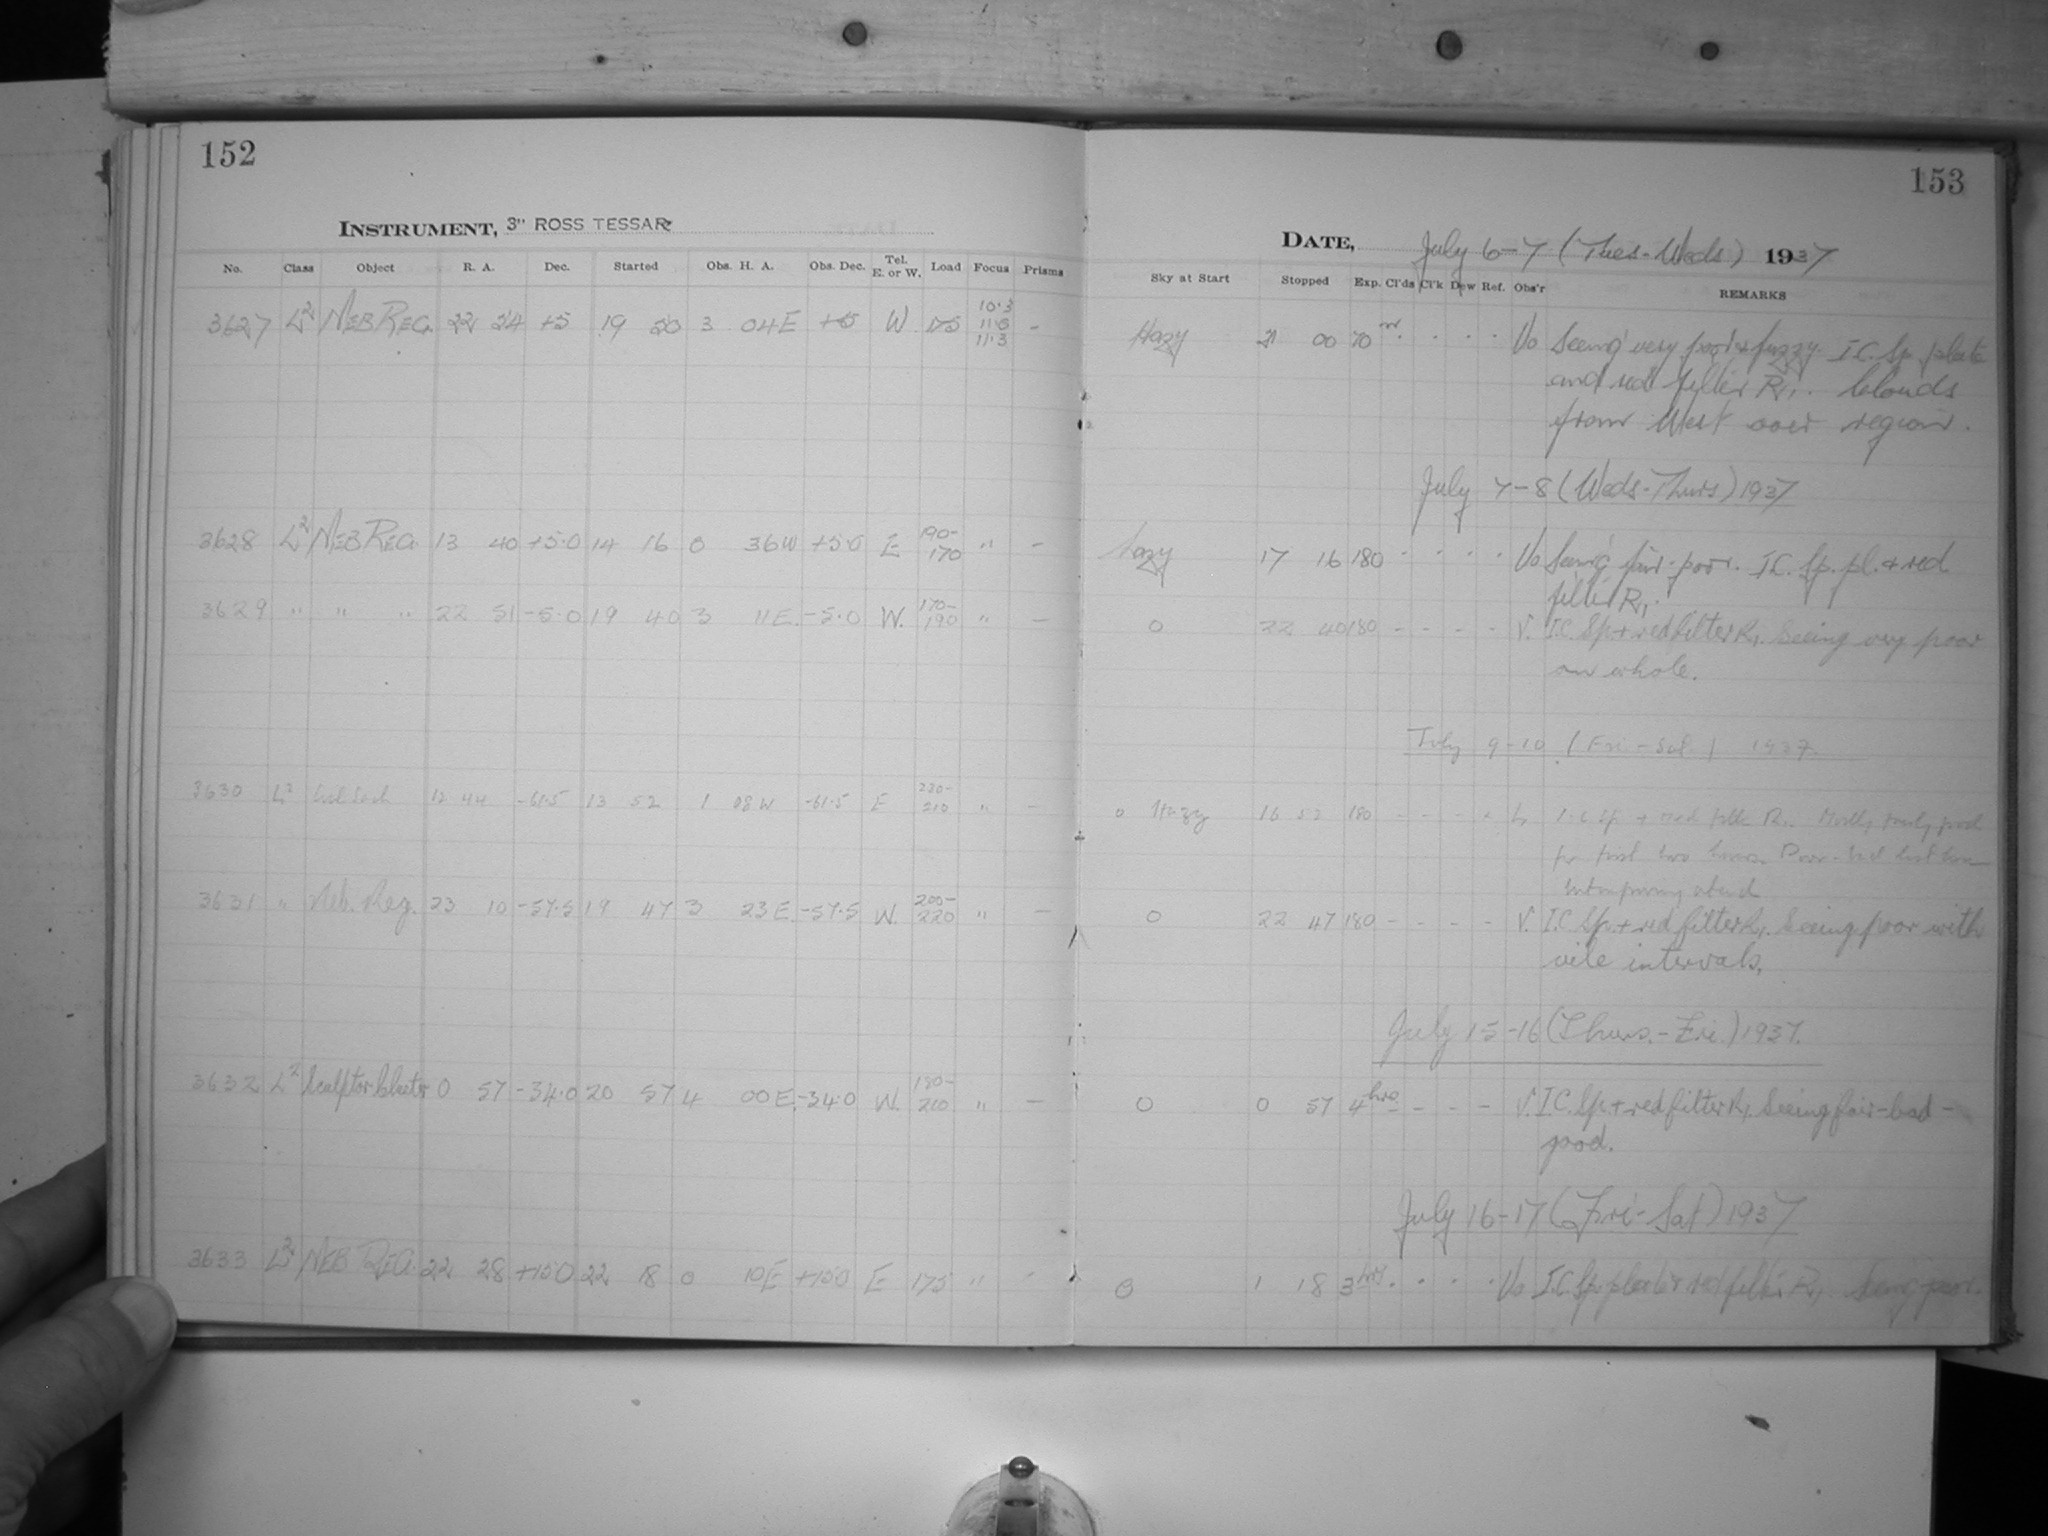 152
INSTRUMENT, 3" ROSS TESSAR
No. Class Object R. A. Dec. Started Obs. H. A. Obs. Dec. Tel. E. or W. Load Focus Prisms
3627 L² NEB REG. 22 24 +5 19 50 3 04E +5 W 175 10.3 11.3 -
3628 L² NEB REG. 13 40 +5.0 14 16 0 36W +5.0 E 190-170 " -
3629 " " " 22 51 -5.0 19 40 3 11E. -5.0 W. 170-190 " -
3630 L² 12 44 -61.5 13 52 1 08W -61.5 E 230-210 " -
3631 " Neb. Reg. 23 10 -57.5 19 47 3 23E. -57.5 W. 200-220 " -
3632 L² Sculptor Cluster 0 57 -34.0 20 57 4 00E. -34.0 W. 180-210 " -
3633 L² NEB REG. 22 28 +15.0 22 18 0 10E +15.0 E 175 " -
153
DATE, July 6-7 (Tues-Weds) 1937
Sky at Start Stopped Exp. Cl'ds Cl'k Dew Ref. Obs'r REMARKS
Hazy 21 00 70 m Vo Seeing very poor & fuzzy. I.C. Sp. plate
and red filter R1. Clouds
from West over region.
July 7-8 (Weds-Thurs) 1937
hazy 17 16 180 Vo Seeing fair-poor. I.C. Sp. pl. & red
filter R1.
0 22 40 180 - - - - V. I.C. Sp. + red filter R1. Seeing very poor
on whole.
July 9-10 (Fri-Sat) 1937.
0 Hazy 16 52 180 - - - - I.C. Sp. + red filter R1.
for first two hours. Poor-bad last hour
0 22 47 180 - - - - V. I.C. Sp. + red filter R1. Seeing poor with
vile intervals.
July 15-16 (Thurs.-Fri.) 1937.
0 0 57 4 hrs - - - V. I.C. Sp. + red filter R1. Seeing fair-bad-
good.
July 16-17 (Fri-Sat) 1937
0 1 18 3 hrs. Vo I.C. Sp. plate & red filter R1. Seeing poor.